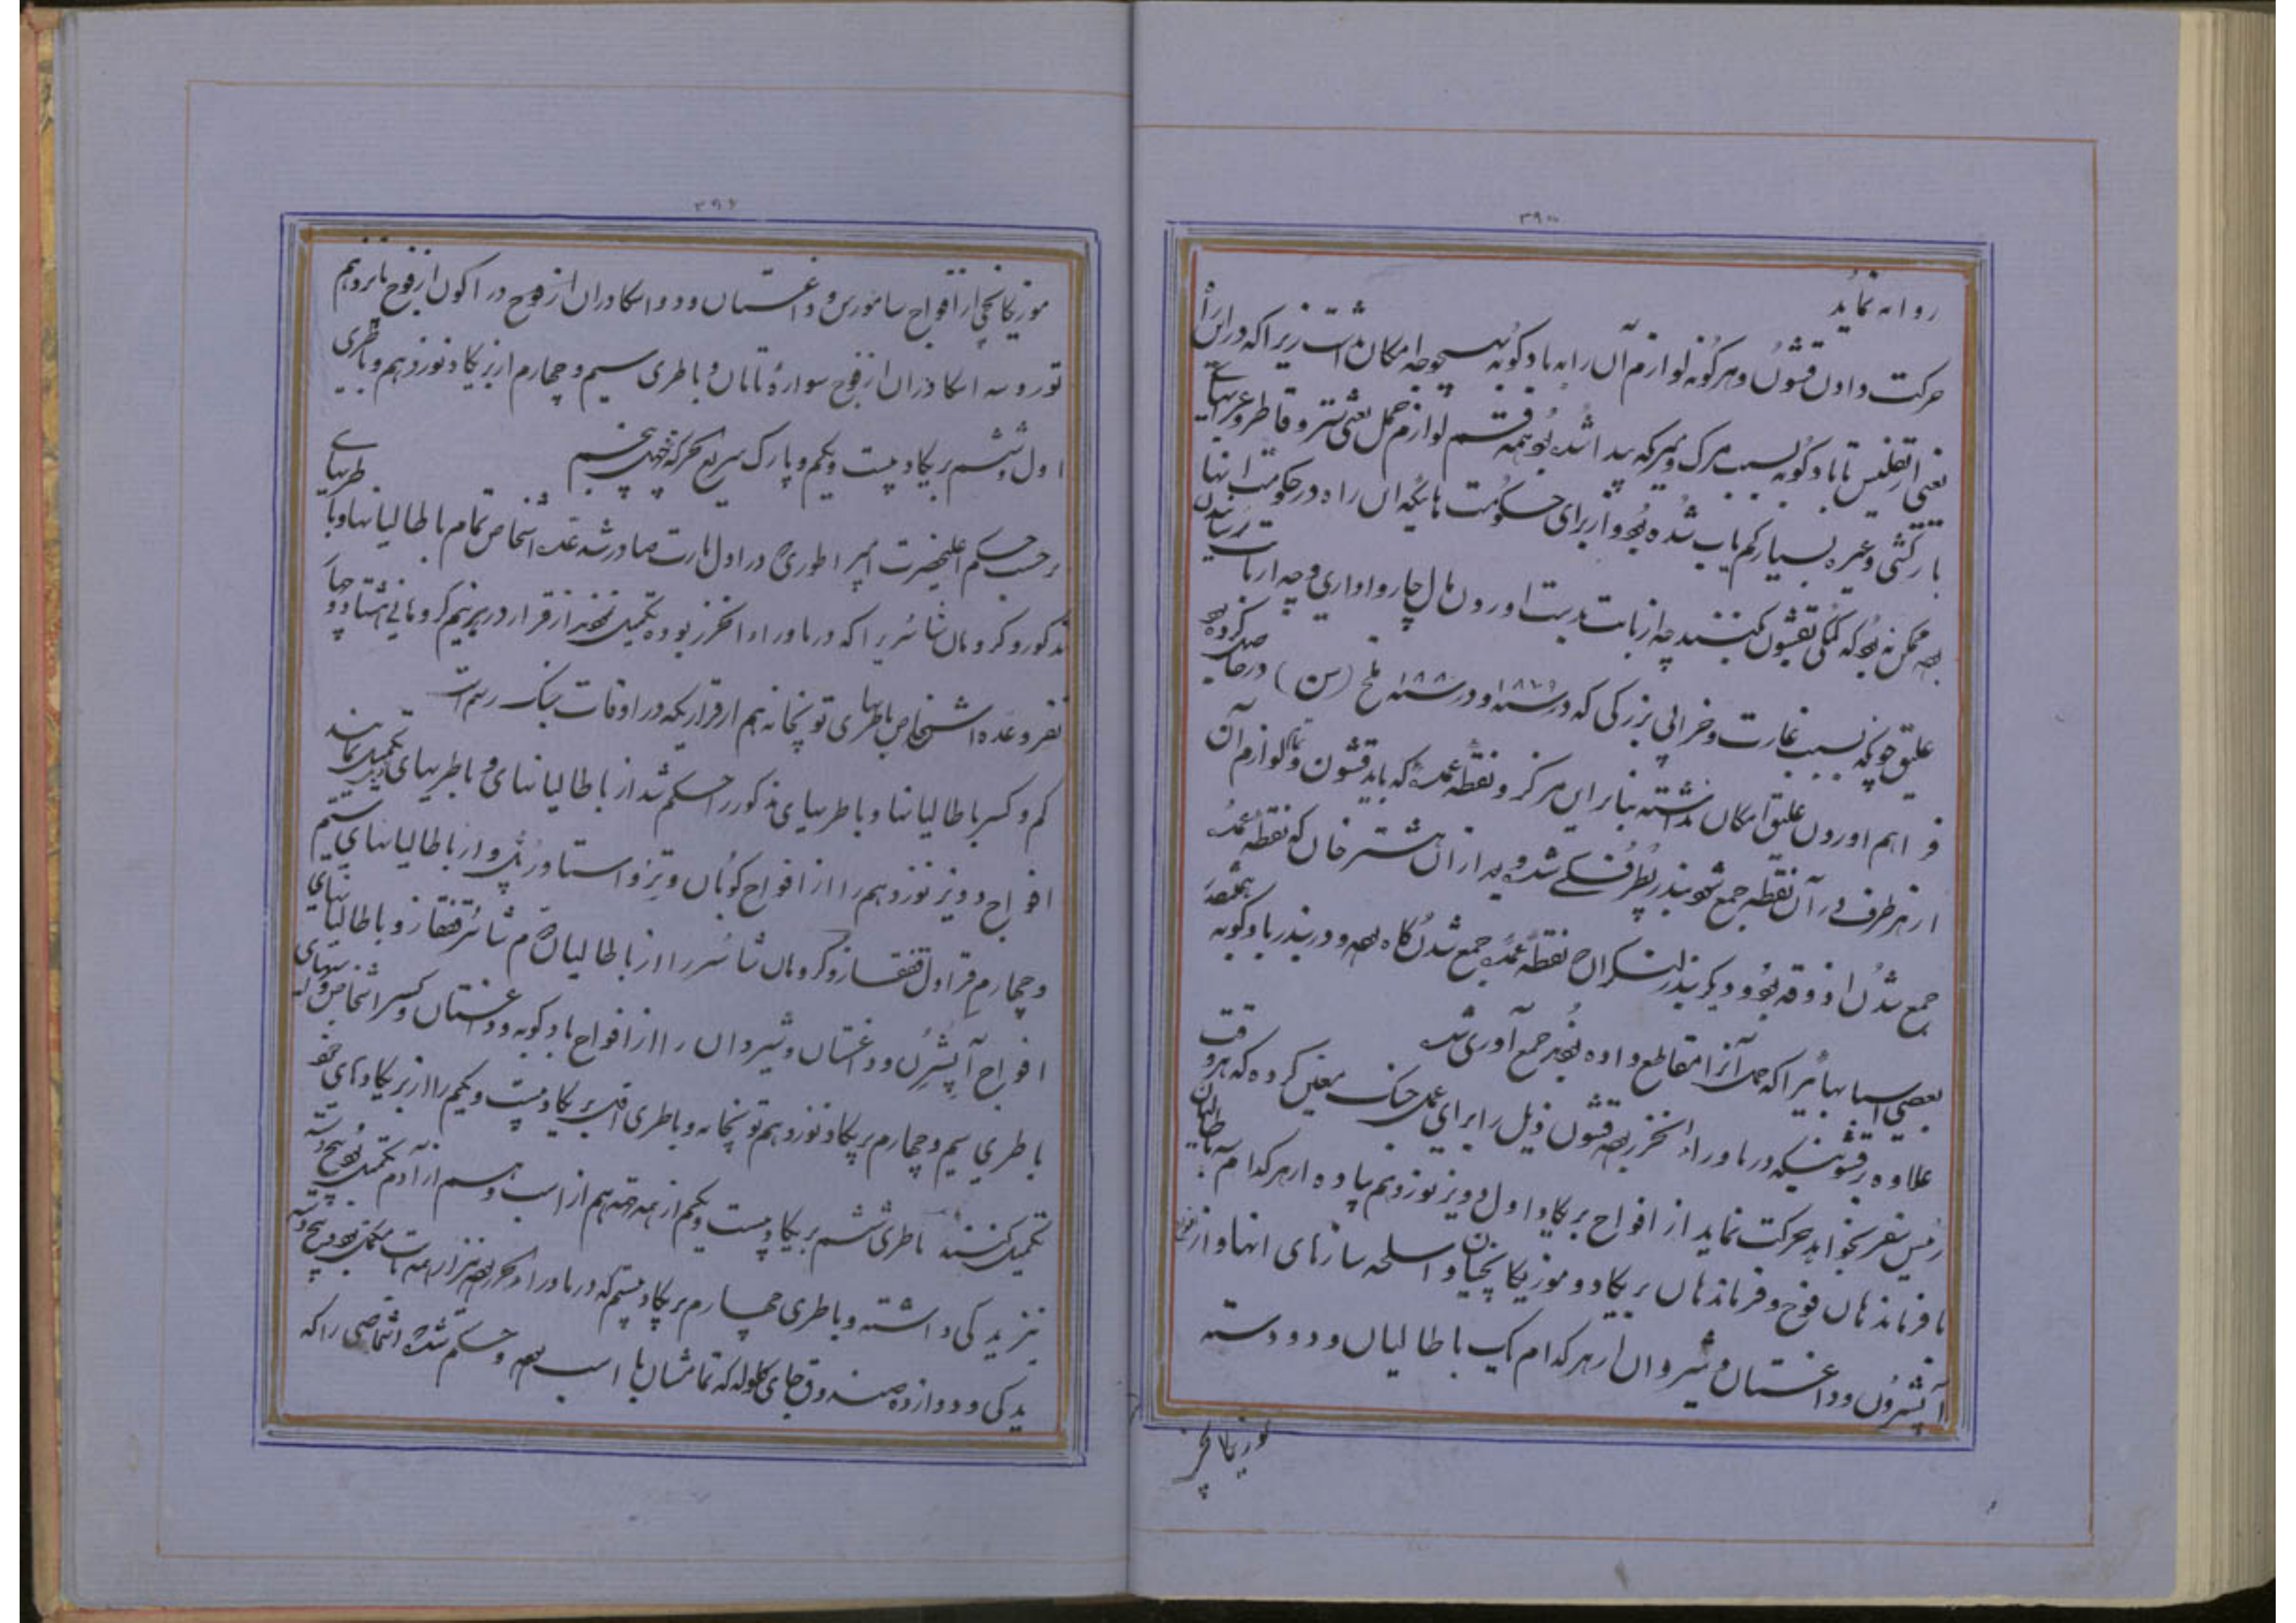 ۳۹۰
روانه نماید
حرکت دادن قشون و هرگونه لوازم آن را به بادکوبه بهیچوجه امکان نداشت زیرا که در این راه
یعنی از تفلیس تا بادکوبه بسبب مرگ و میر که پیدا شده بود همه قسم لوازم حمل یعنی شتر و قاطر و عرابهای
بارکشی و غیره بسیار کم یاب شده بود و از برای حکومت هائیکه این راه در حکومت اینها
بود ممکن نبود که کمکی بقشون کنند چه از بابت بدست اوردن مال چارواداری و چه از بابت رسانیدن
علیق چونکه بسبب غارت و خرابی بزرگی که در سنه ۱۸۷۹ و در سنه ۱۸۸۰ ملخ (سن) در حاصل کرده بود
فراهم اوردن علیق امکان نداشته بنابراین مرکز و نقطه عمده که باید قشون و تمام لوازم آن
از هر طرف در آن نقطه جمع شود بندر پطرفسکی شد و بعد از ان هشترخان که نقطه عمده
جمع شدن اذوقه بود و دیگر بندر لنکران نقطه عمده جمع شدن کاه بود و در بندر بادکوبه
بعضی اسبابها را که حمل آنرا مقاطع داده بودند جمع آوری شد
علاوه بر قشونیکه در ماوراء الخزر بود قشون ذیل را برای عمل جنگ معین کرده که هر وقت
رئیس سفر بخواهد حرکت نماید از افواج بریکاد اول دویز نوزدهم پیاده از هر کدام یک باطالیان
با فرماندهان فوج و فرماندهان بریکاد و موزیکانچیان و اسلحه سازهای انها و از افواج
آپشرون و داغستان و شیروان از هر کدام یک باطالیان و دو دسته
موزیکانچی
موزیکانچی از افواج سامورس و داغستان و دو اسکادران از فوج دراکون از فوج پانزدهم
تورو سه اسکادران از فوج سواره تامان و باطری سیم و چهارم از بریکاد نوزدهم و باطری
اول و ششم بریکاد بیست و یکم و پارک سریع الحرکه
برحسب حکم اعلیحضرت امپراطوری در اول مارت صادر شد عده اشخاص تمام باطالیانها و باطریهای
مذکور و کرومان شائری را که در ماوراء الخزر بوده تکمیل نمودند از قرار در هر نیم کرومانی هشتاد و چهار
نفر و عده اشخاص باطریهای توپخانه هم از قراریکه در اوقات جنگ رسم است
کم و کسر باطالیانها و باطریهای مذکور را حکم شد از باطالیانهای و باطریهای تکمیل نمایند
افواج دویز نوزدهم را از افواج کوبان و تیز و استاورپل و از باطالیانهای بیستم
و چهارم قراول قفقاز و کرومان شائر را از باطالیان شائر قفقاز و باطالیانهای
افواج آپشرن و داغستان و شیروان را از افواج بادکوبه و داغستان و کسر اشخاص
باطری سیم و چهارم بریکاد نوزدهم توپخانه و باطری اول بریکاد بیست و یکم را از بریکادهای خود
تکمیل کنند باطری ششم بریکاد بیست و یکم از همه جهة هم از اسب و هم از آدم تکمیل بود پنج دسته
نیز یدکی داشته و باطری چهارم بریکاد بیستم که در ماوراء الخزر بود نیز از همه بابت مکمل بود و پنج دسته
یدکی و دوازده صندوق جای گلوله که تمامشان با اسب بود و حکم شده اشخاصی را که